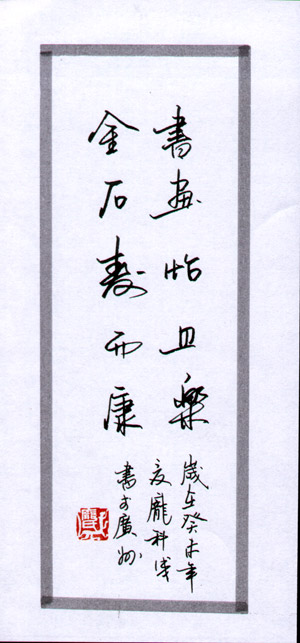 書畫怡且樂
金石壽而康
歲在癸未年
夏龐科陵
書于廣州